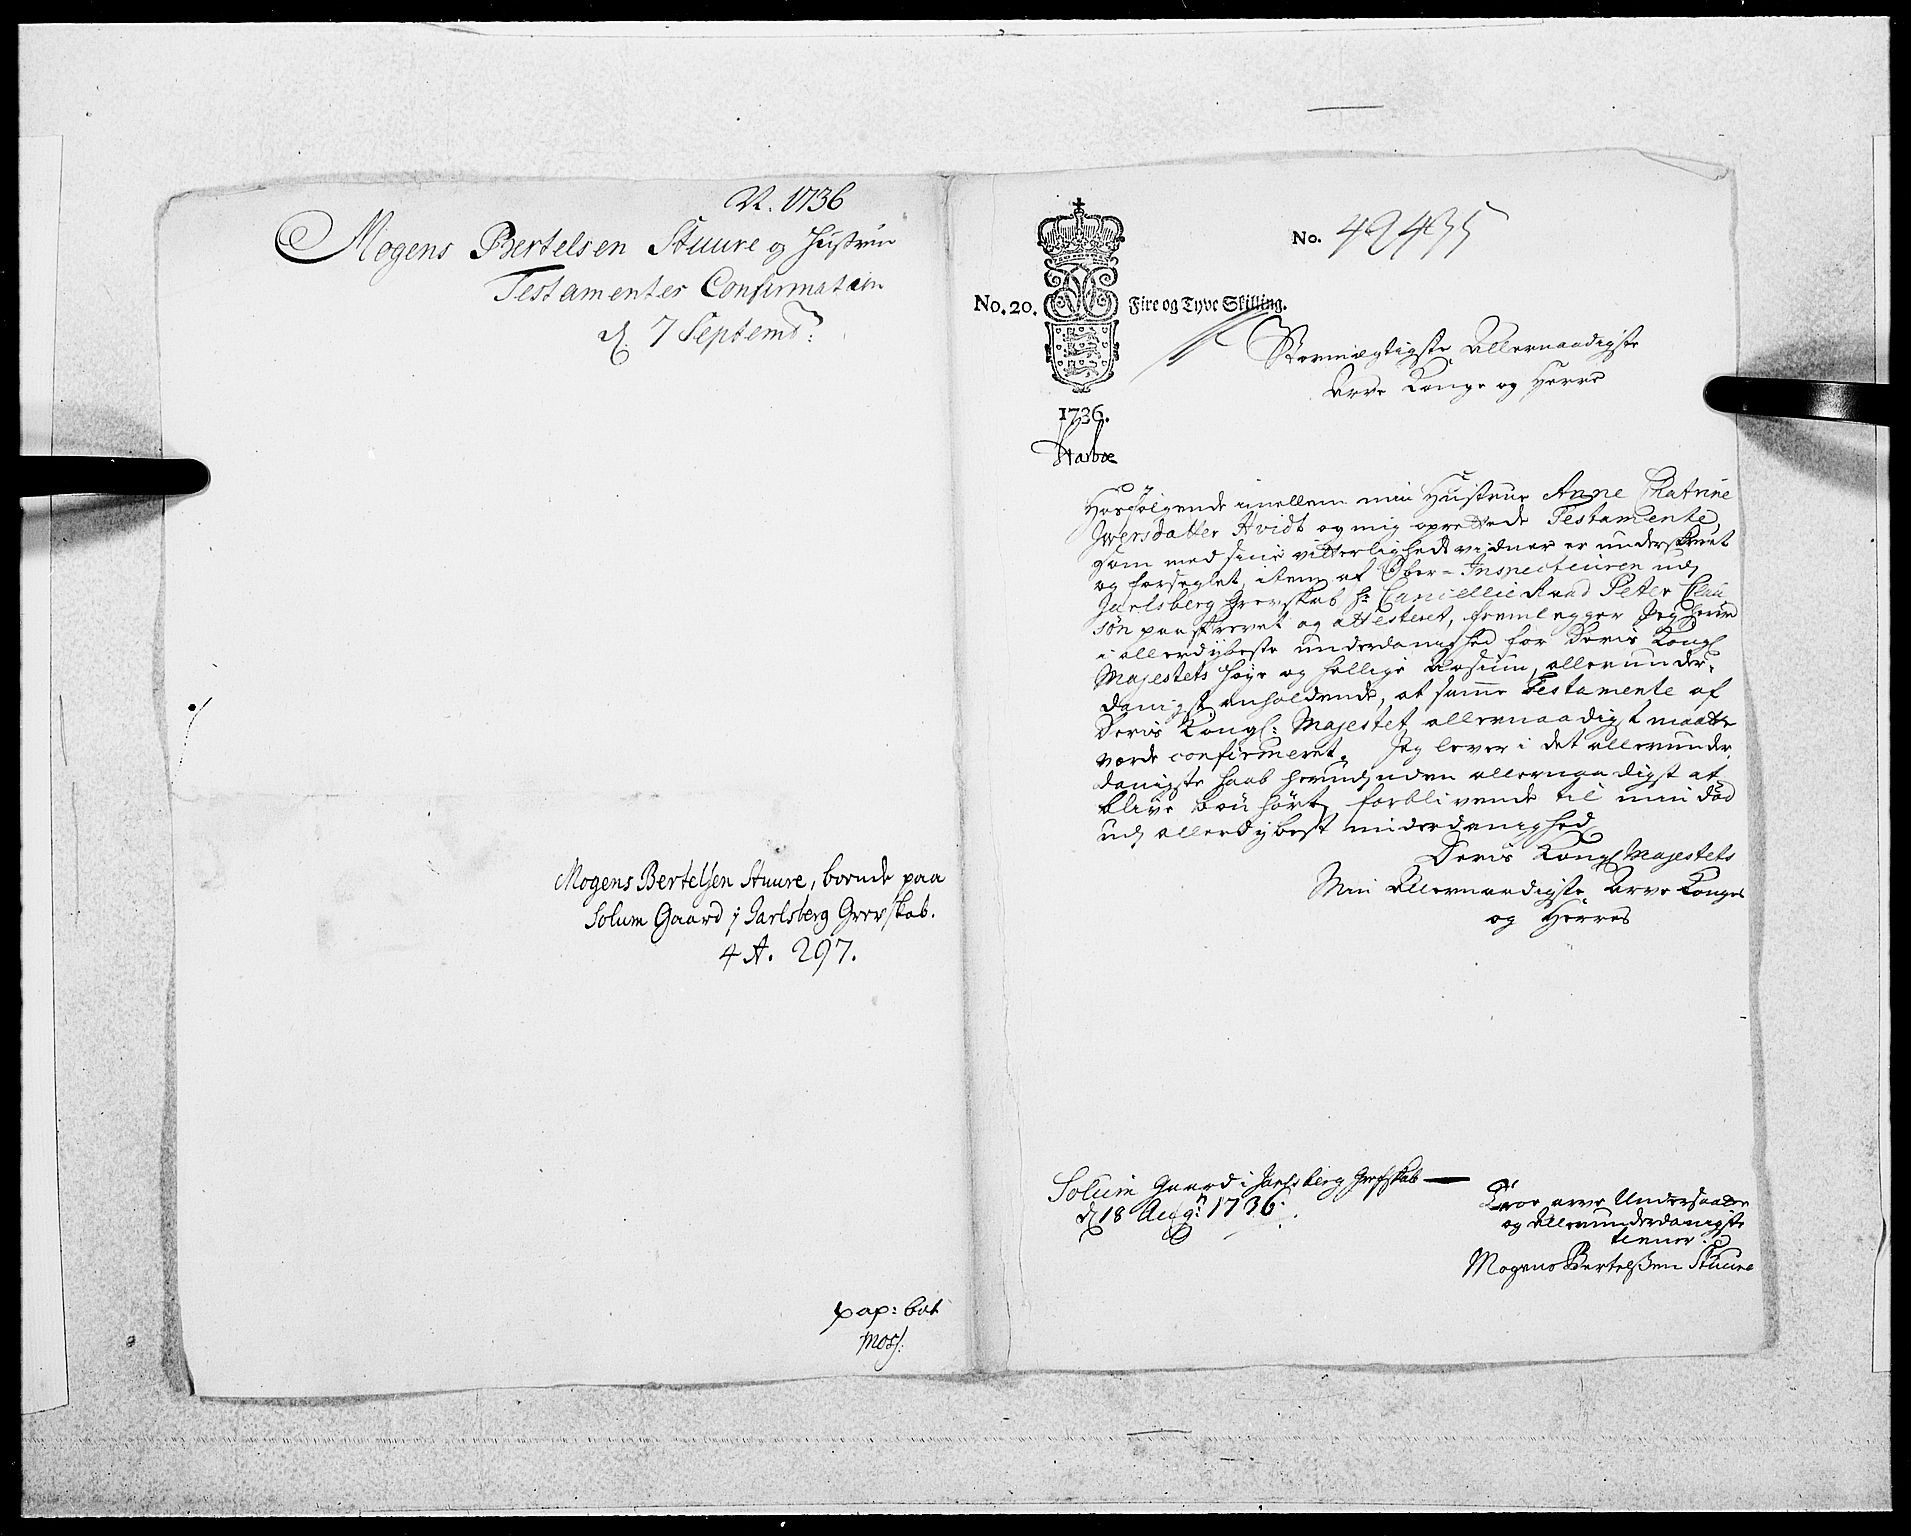 N. 1736
Mogens Bertelsen Stuure og Hustrue
Testamentes Confirmation
d. 7 Septembr:
Mogens Bertelsen Stuure, boende paa
Solum Gaard j Jarlsberg Grevskab.
4 A. 297.
pap: bet
No. 49435
No. 20. Fire og Tyve Skilling.
1736.
Stormægtigste Allernaadigste
Arve Konge og Herre
Hosfølgende imellem min Hustrue Anne Chatrine
Iwersdatter Hvidt og mig oprettede Testamente,
som med sine vitterligheds vidner er underskrevet
og forseglet, item af Ober-Inspecteuren udj
Jarlsberg Grevskab Hr. Cancellie Raad Peter Clau
søn paaskrevet og attesteret, fremlegger Jeg herved
i allerdybeste underdanighed for Deris Kongl
Majestets høye og hellige Aasiun, allerunder-
danigst anholdende, at samme Testamente af
Deris Kongl: Majestet allernaadigst maatte
vorde confirmeret. Jeg lever i det allerunder
danigste haab herudjnden allernaadigst at
blive bønhørt, forblivende til min død
udj allerdybest underdanighed
Deris Kongl Majestets
Min Allernaadigste Arve Konges
og Herres
Solum Gaard i Jarlsberg Grefskab
d 18 Aug: 1736
Troe arve Undersaatte
og Allerunderdanigste
tienner
Mogens Bertelßen Stuure